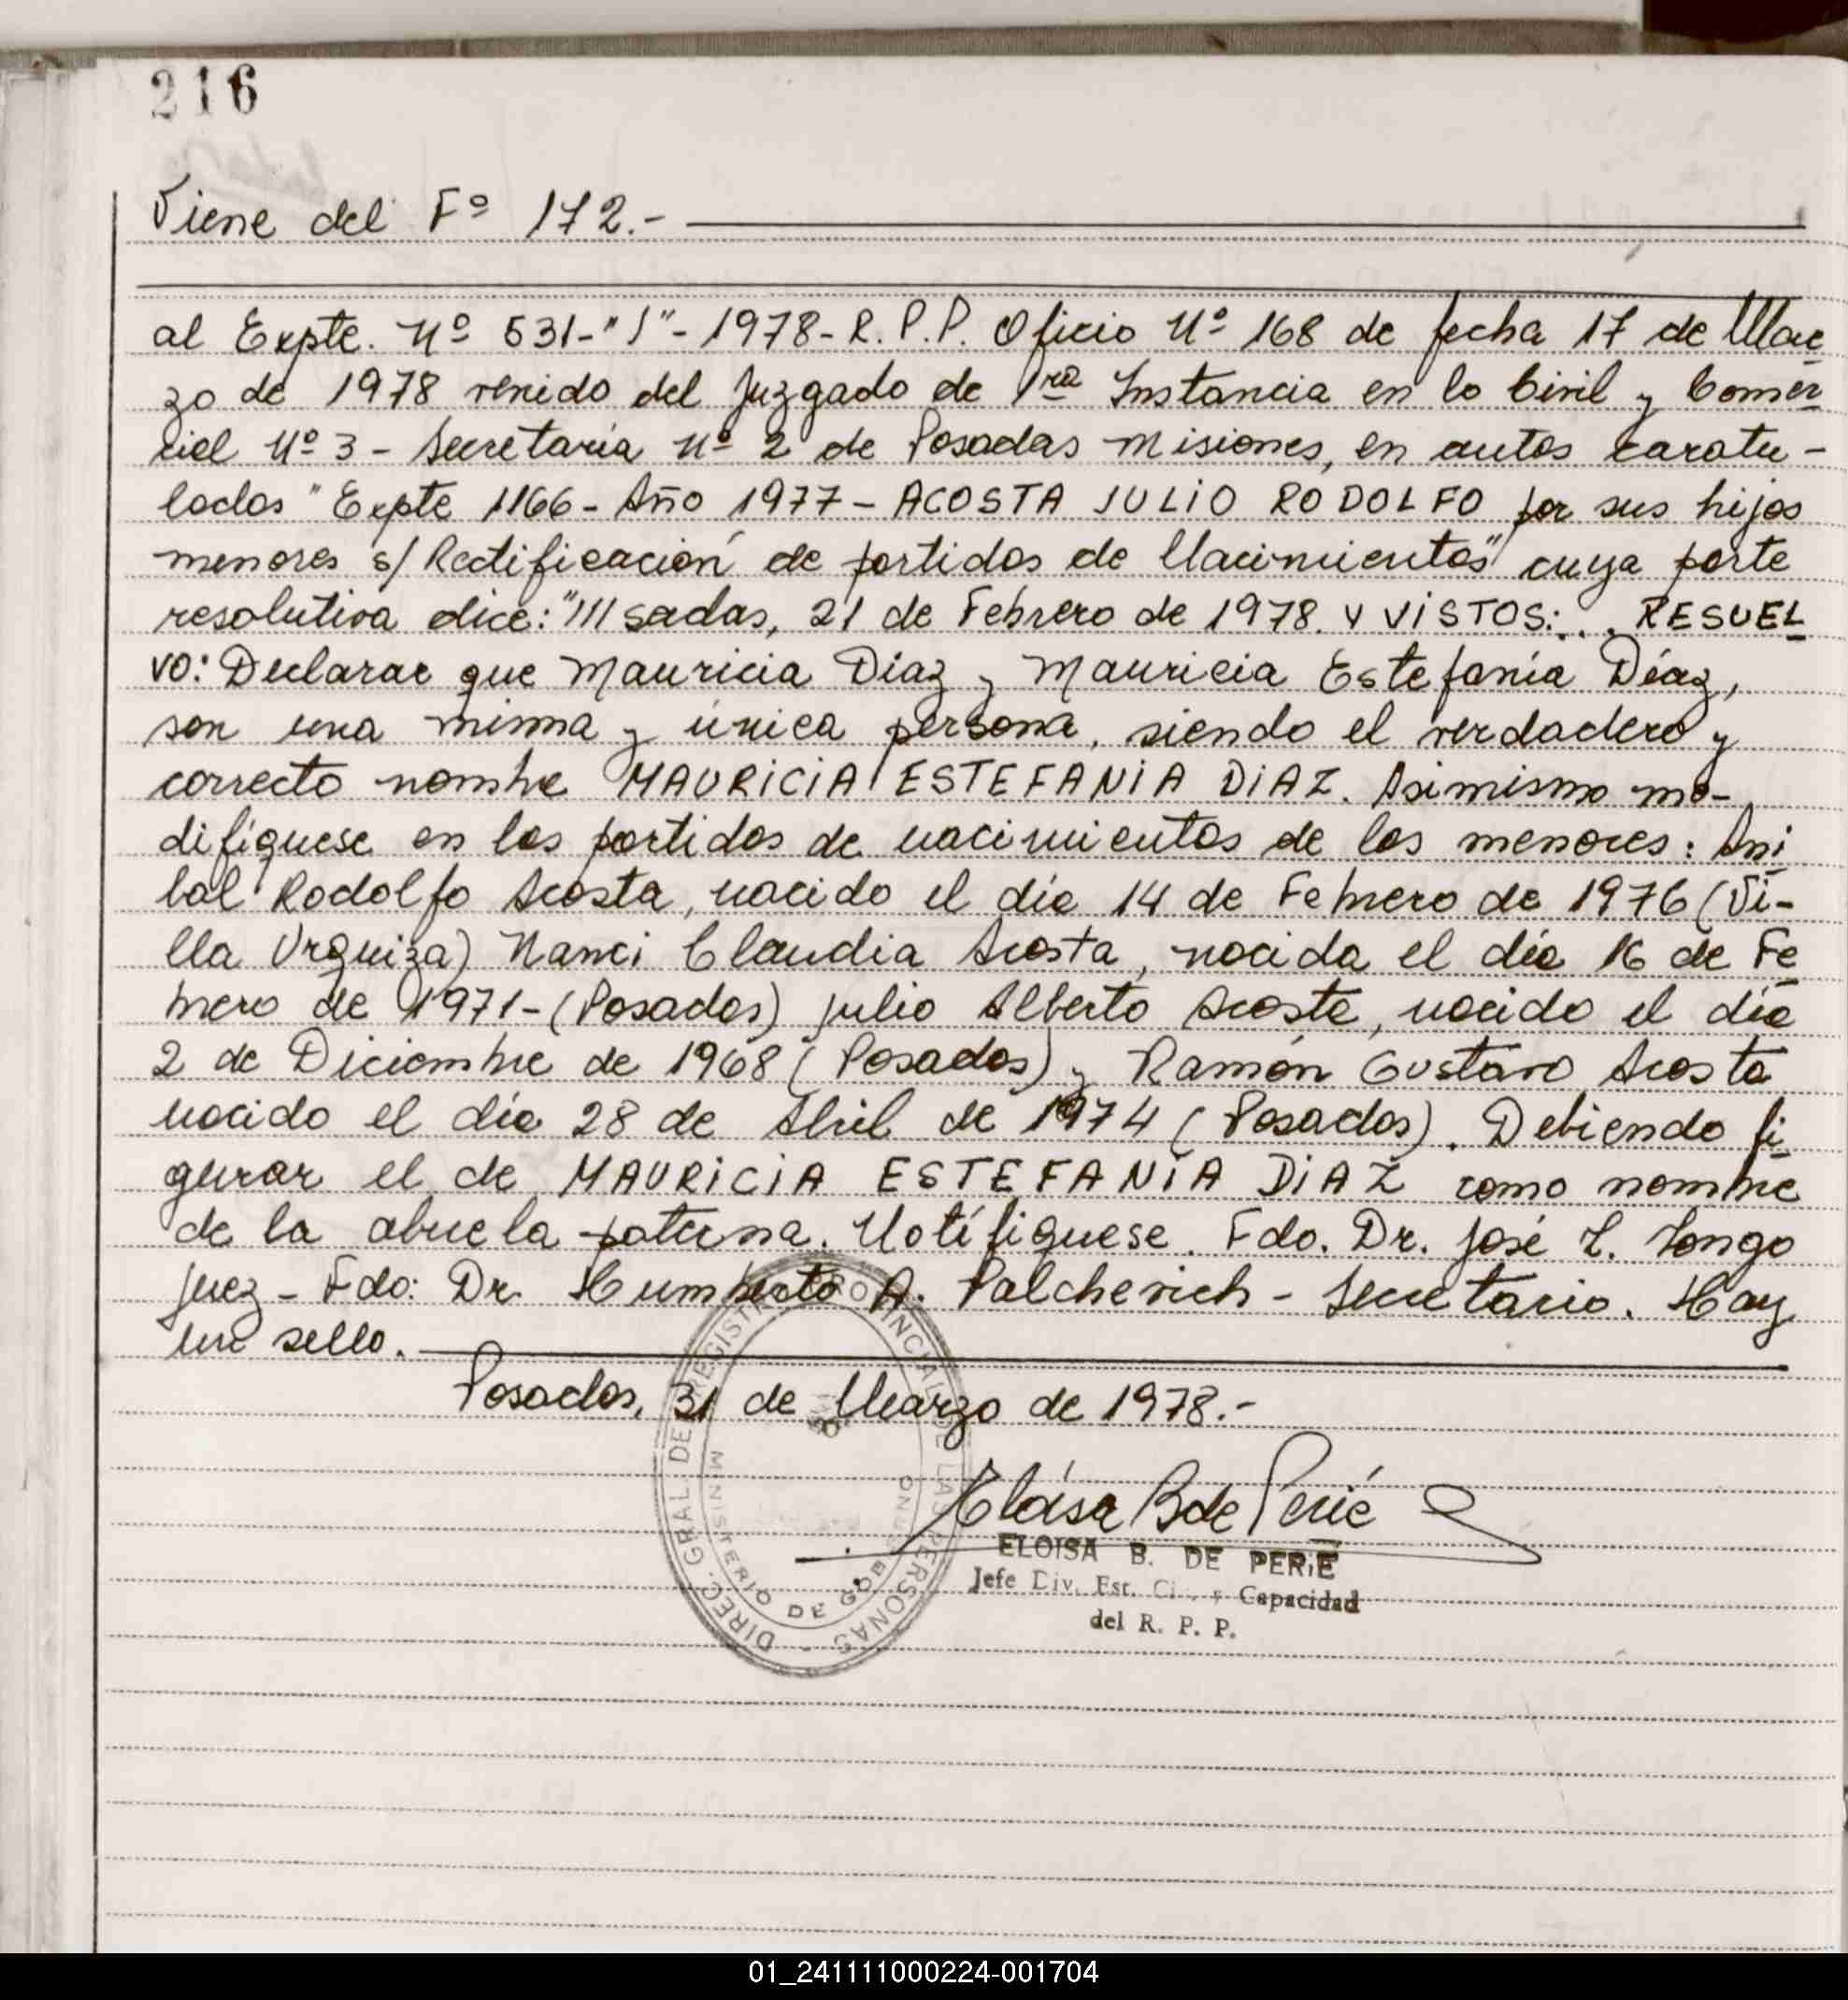 216
Viene del Fº 172.-
al Expte. Nº 531-"J"-1978-R.P.P. Oficio Nº 168 de fecha 17 de Mar
zo de 1978 venido del Juzgado de 1ra Instancia en lo Civil y Comer
cial Nº 3 - Secretaría Nº 2 de Posadas Misiones, en autos caratu-
lados "Expte 1166-Año 1977-ACOSTA JULIO RODOLFO por sus hijos
menores s/ Rectificación de partidas de Nacimientos" cuya parte
resolutiva dice: "///sadas, 21 de Febrero de 1978. Y VISTOS:... RESUEL
VO: Declarar que Mauricia Díaz y Mauricia Estefanía Díaz,
son una misma y única persona, siendo el verdadero y
correcto nombre MAURICIA ESTEFANIA DIAZ. Asimismo mo-
difíquese en las partidas de nacimientos de los menores: Aní
bal Rodolfo Acosta, nacido el día 14 de Febrero de 1976 (Vi-
lla Urquiza) Nanci Claudia Acosta, nacida el día 16 de Fe
brero de 1971-(Posadas) Julio Alberto Acosta, nacido el día
2 de Diciembre de 1968 (Posadas) y Ramón Gustavo Acosta
nacido el día 28 de Abril de 1974 (Posadas). Debiendo fi
gurar el de MAURICIA ESTEFANÍA DIAZ como nombre
de la abuela paterna. Notifíquese. Fdo. Dr. José L. Longo
Juez - Fdo: Dr. Humberto A. Palchevich - Secretario. Hay
un sello.
Posadas, 31 de Marzo de 1978.-
Eloísa B de Perié
ELOISA B. DE PERIE
Jefe Div. Est. y Capacidad
del R. P. P.
DIREC. GRAL. DEL REGISTRO PROVINCIAL DE LAS PERSONAS -
MINISTERIO DE GOBIERNO
01_241111000224-001704